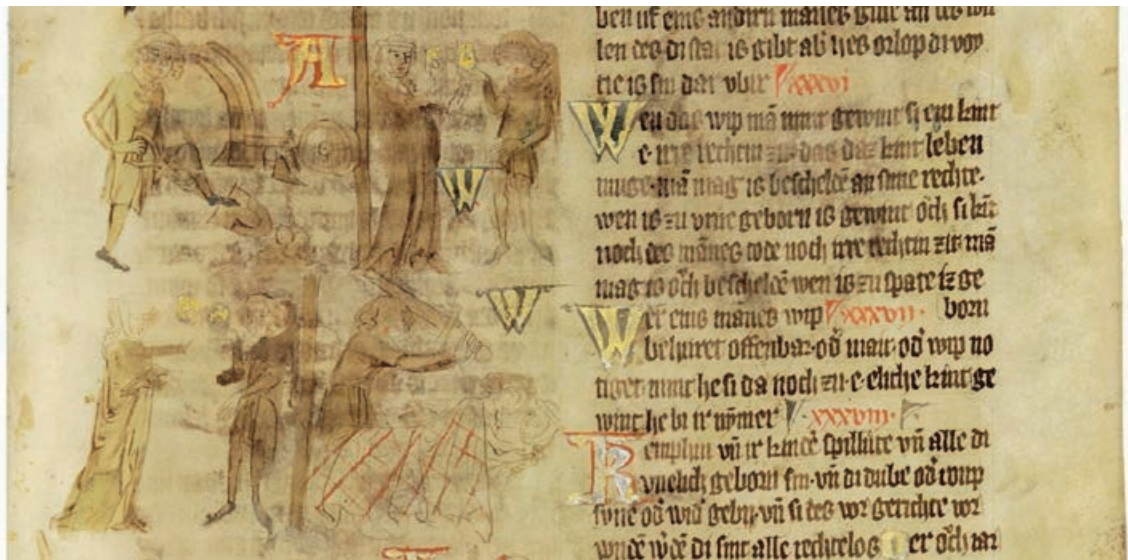 A
W
W
ben uf eins andirn manes gute an des wil
len des di stat is gibt ab' orlop di voy
tie is sin dar vbir xxxvi
Wen das wip mā nimt gewint si ein kint
e irre rechtin zit das daz kint leben
muge mā mag is bescheldē an sime rechte.
wen is zu vrue geborn is gewint och si kīt
noch des mānes tode noch irre rechtin zit mā
mag is och bescheldē wen is zu spate iz ge
born
Wer eins mānes wip xxxvii.
behuret offenbar od' od' wip no
tiget nimt he si da noch zu e. eliche kint ge
wint he bi ir nȳmer xxxviii.
Kemphin vn̄ ir kindē spillute vn̄ alle di
vnelich geborn sin. vn̄ di dube od' roup
sune od' wid' gebin. vn̄ si des vor gerichte vor
wndē w'dē di sint alle rechtelos er och